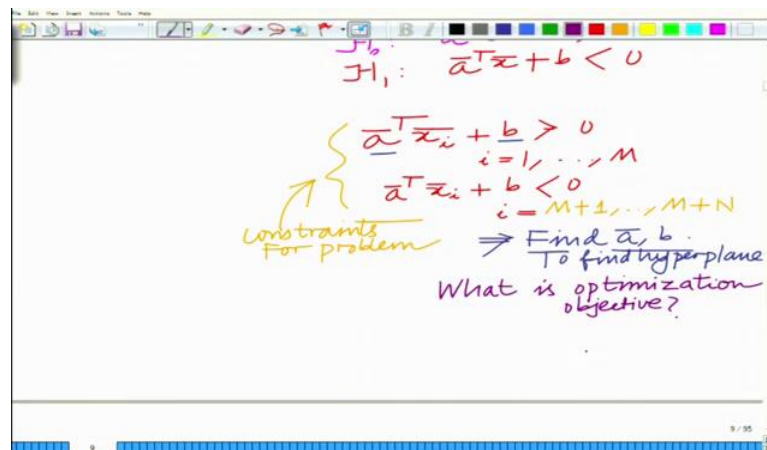 File Edit View Insert Actions Tools Help
H₁: a̅ᵀx̅ + b < 0
a̅ᵀx̅ᵢ + b > 0
i = 1, ..., M
a̅ᵀx̅ᵢ + b < 0
i = M+1, ..., M+N
constraints
For problem
⇒ Find a̅, b.
To find hyperplane
What is optimization
objective?
9 / 95
9